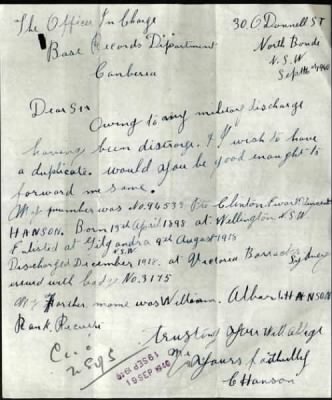 The Officer In Charge
Base Records Dipartment
Canberra
30. O Donnell ST
North Bondi
N.S.W
Dear Sir
Owing to my military discharge
having been distroye. & I wish to have
a duplicate. would you be good enought to
forward me same.
My number was No. 96539 Pte Clinton
HANSON. Born 19th April 1898 at Wellington N.S.W.
Enlisted at Gilgandra 9th August 1918
N.S.W
Discharged December 1918. at Victoria Barracks Sydney
issued with badge No. 3175
My Farther name was William. HANSON
Rank.
trusting you will oblige
Yours faithfully
C Hanson